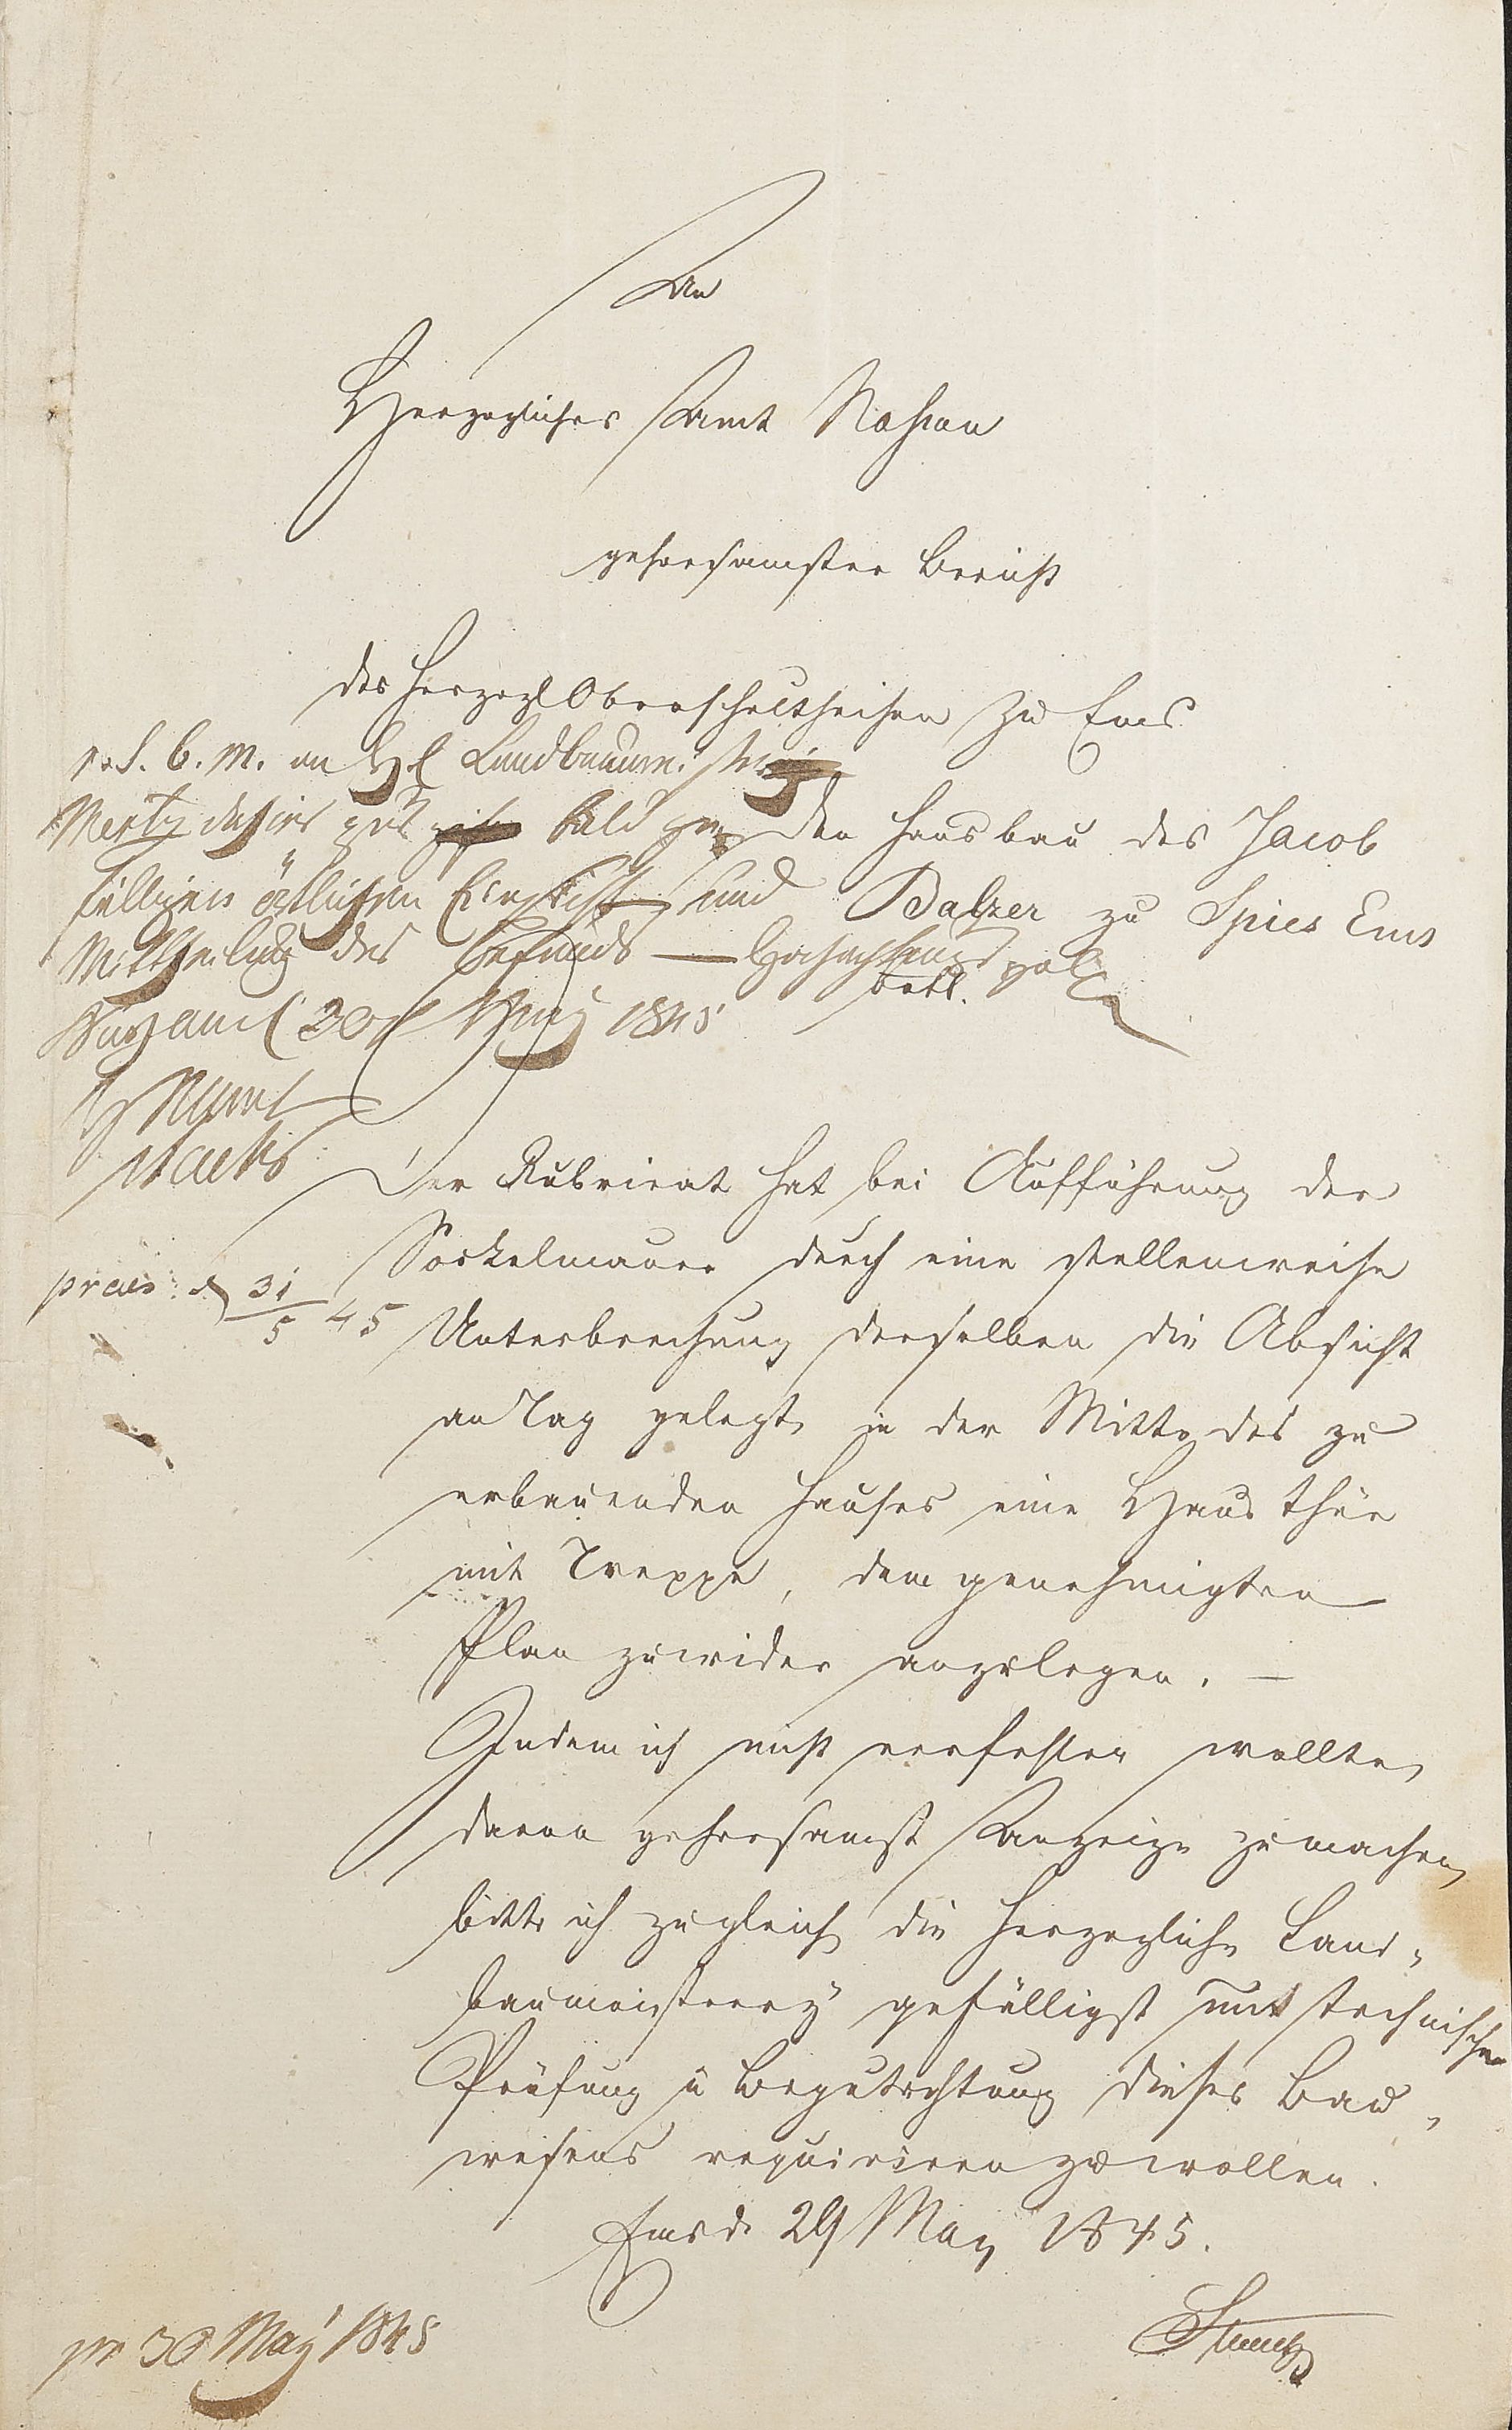 An
Herzogliches Amt Nassau
gehorsamster Bericht
des Herzogl Oberschultheisen zu Ems
den Hausbau des Jacob
Balzer zu Spies Ems
betr.
r. s. b. m. an Hl Landbaum.
Mertz dahier zur bald ge
fälligen örtlichen Einsicht und
Mittheilung des Befunds — Hochachtungsvoll
Nassau d 30 May 1845
H N Amt
Der Rubricat hat bei Aufführung der
Sockelmauer durch eine stellenweise
Unterbrechung derselben die Absicht
an Tag gelegt, in der Mitte des zu
erbauenden Hauses eine Haus thür
mit Treppe, dem genehmigten
Plan zuwider anzulegen. —
Indem ich nicht verfehlen wollte,
davon gehorsamst Anzeige zu machen,
bitte ich zugleich die Herzogliche Land-
baumeisterey gefälligst mit technischer
Prüfung u Begutachtung dieses Bau-
wesens requiriren zu wollen.
Ems d. 29 May 1845.
praes: d 31/5 45
pr 30 May 1845